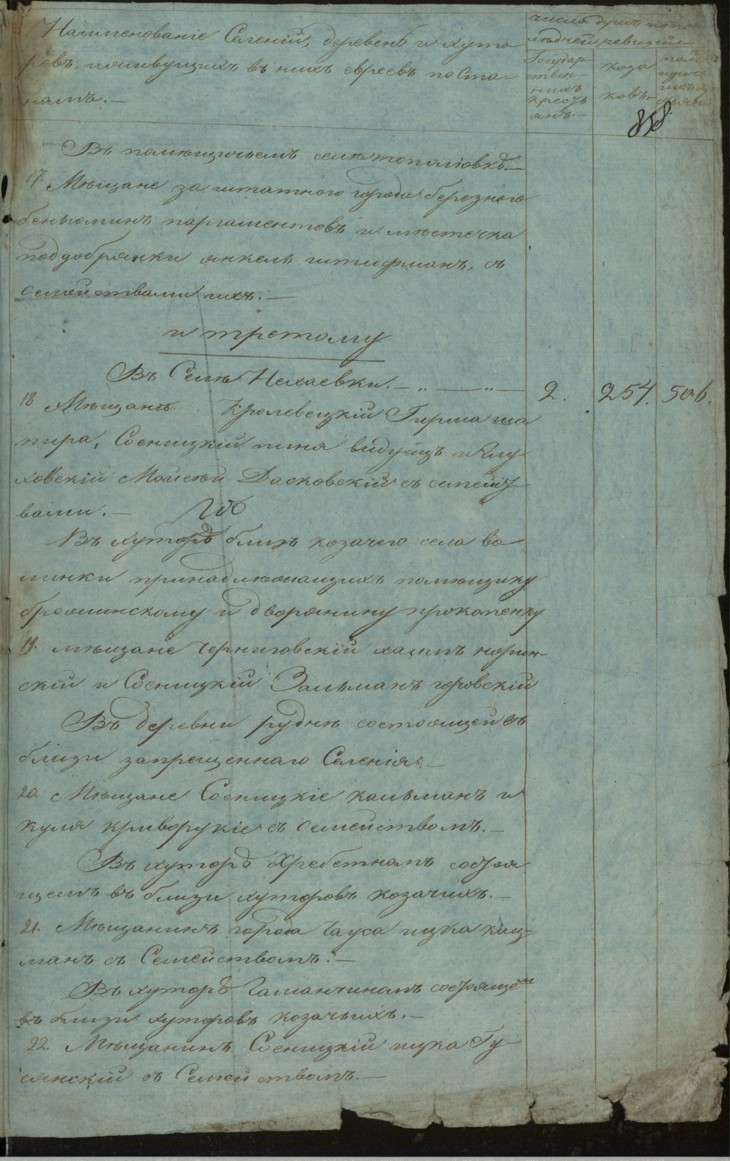 Наименованіе Селеній, деревень и хуто
ровъ, живущихъ въ нихъ евреевъ по Ста
намъ. —
число душъ по по
людней ревизіи
Государ
ствен
ныхъ
крестъ
янъ —
коза
ковъ —
858
Въ помющичьемъ селе тополювкъ —
17 Мющане заштатного города березного
беньюминъ парламентовъ и мюстечка
поддобрянки янкель штифманъ, съ
семействами ихъ. —
и третому
Въ Селю Нехаевки. — „ — „ — 2. 254. 506.
18 Мющанъ Кролевецкій Гирша ша
пира, Сосницкій пиня видуцъ и Глу
ховскій Мойсюй Дасковскій съ семейст
вами. —
Въ хуторъ близь козачего села ва
минки принадлюжащихъ помющику
брешинскому и дворянину прокопенку
19. мющане черниговскій хаимъ норин-
скій и Сосницкій Зальманъ горовскій
Въ деревни руднъ состоящей въ
близи запрещеннаго Селенія —
20. Мющане Сосницкіе кальманъ и
куля криворукіе съ семействомъ. —
Въ хуторъ Хребетномъ состоя
щемъ въ близи хуторовъ козачихъ. —
21. Мющанинъ города Чауса ицка кац-
манъ съ Семействомъ. —
Въ хуторъ Гаманчиномъ состоящемъ
въ близи хуторовъ козачьихъ. —
22. Мющанинъ Сосницкій ицка Гу-
сянскій съ Семействомъ. —